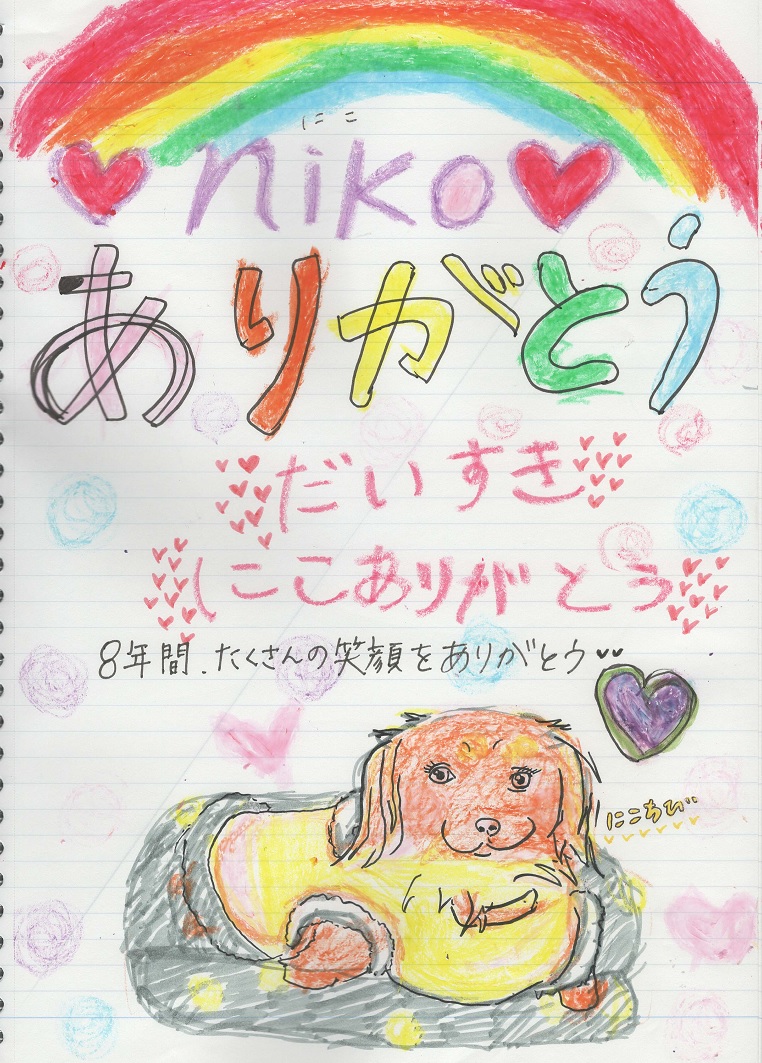 にこ
niko
ありがとう
だいすき
にこありがとう
8年間、たくさんの笑顔をありがとウ
にこちび